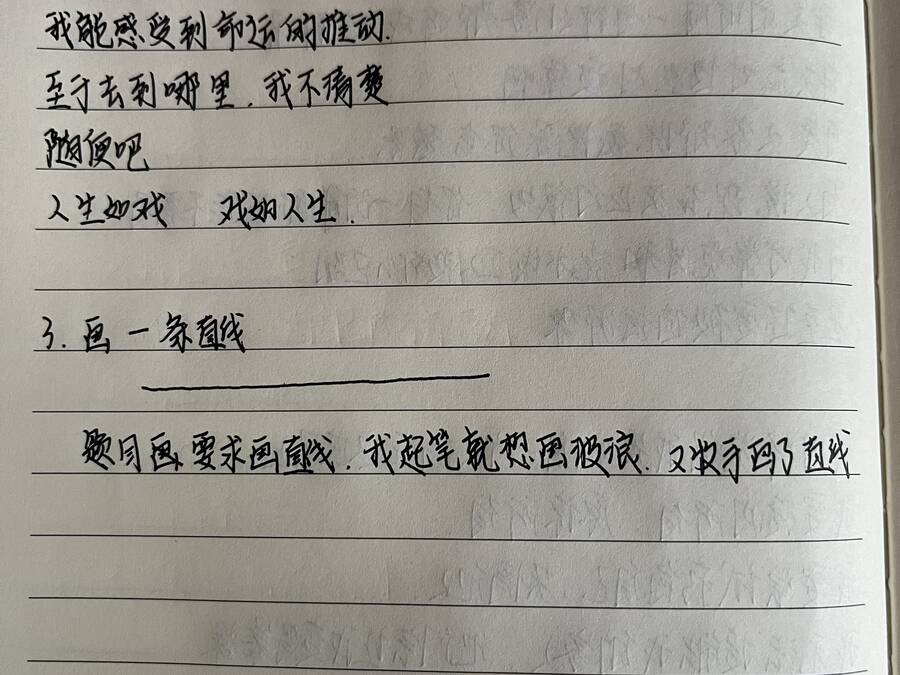 我能感受到命运的推动.
至于去到哪里.我不清楚
随便吧
人生如戏 戏如人生.
3.画一条直线
题目画要求画直线.我起笔就想画波浪.又收手画了直线